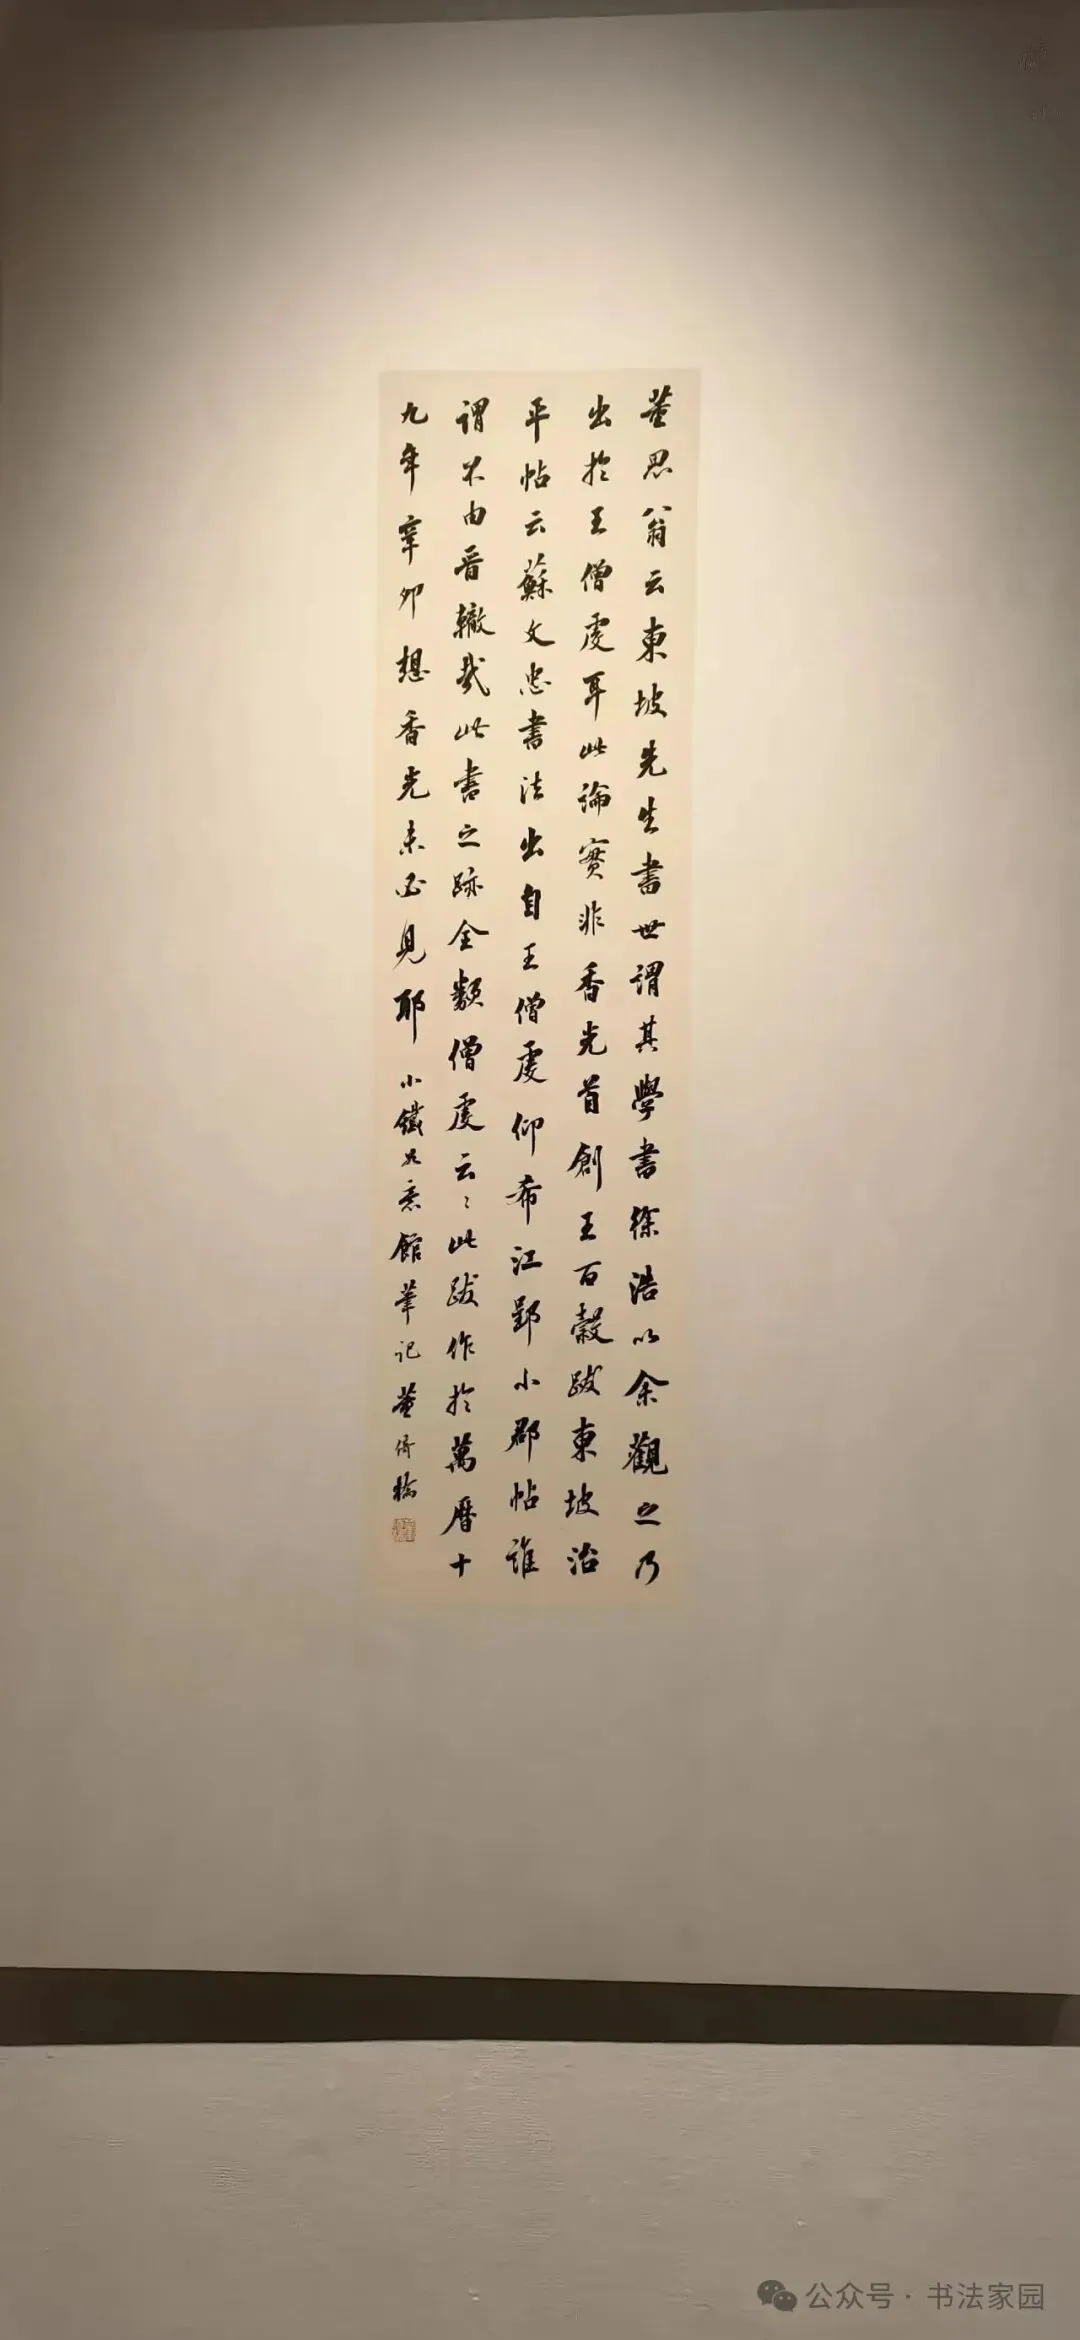 董思翁云東坡先生書世謂其學書徐浩以余觀之乃
出於王僧虔耳此論實非香光首創王百穀跋東坡治
平帖云蘇文忠書法出自王僧虔仰希江郢小郡帖誰
謂不由晉轍哉此書之跡全類僧虔云〻此跋作於萬曆十
九年辛卯想香光未必見耶 小鐵如意館筆記 董倚橋
公众号 · 书法家园